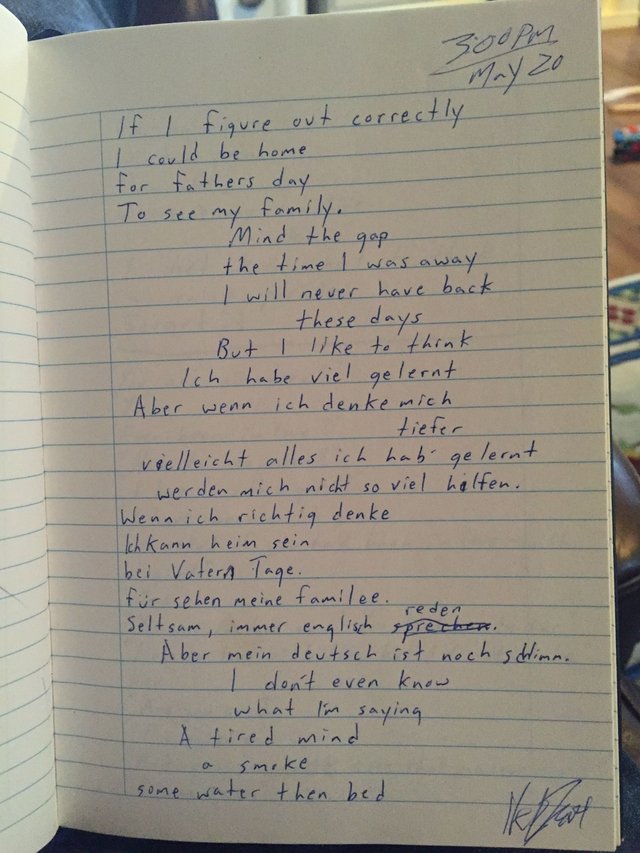 3:00PM
MAY 20
If I figure out correctly
I could be home
for fathers day
To see my family.
Mind the gap
the time I was away
I will never have back
these days
But I like to think
Ich habe viel gelernt
Aber wenn ich denke mich
tiefer
vielleicht alles ich hab' gelernt
werden mich nicht so viel hilfen.
Wenn ich richtig denke
Ich kann heim sein
bei Vatern Tage.
für sehen meine familee.
reden
Seltsam, immer englisch sprechen.
Aber mein deutsch ist noch schlimm.
I don't even know
what I'm saying
A tired mind
a smoke
some water then bed